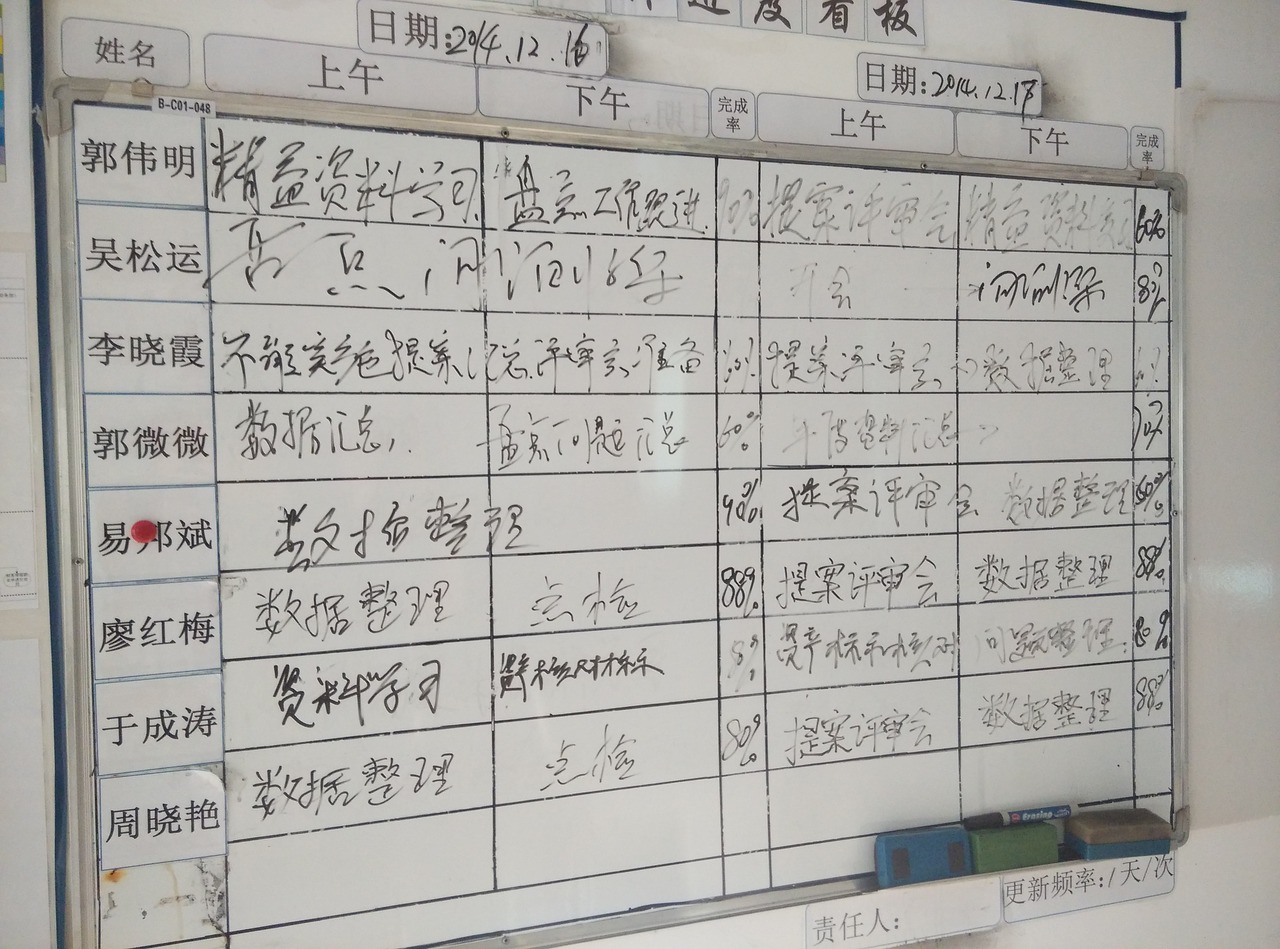 进度看板
姓名 日期:2014.12.16 日期:2014.12.17
上午 下午 完成率 上午 下午 完成率
B-C01-048
郭伟明 精益资料学习 盘点工作跟进 提案评审会 精益资料学习 60%
吴松运 盘点 开会
李晓霞 提案汇总 评审会准备 提案评审会 数据整理
郭微微 数据汇总 盘点问题汇总 60% 资料汇总
易邦斌 数据整理 40% 提案评审会 数据整理
廖红梅 数据整理 点检 88% 提案评审会 数据整理 88%
于成涛 资料学习 资产核对 资产标示核对 问题整理 80%
周晓艳 数据整理 点检 80% 提案评审会 数据整理 88%
责任人: 更新频率:1天/次